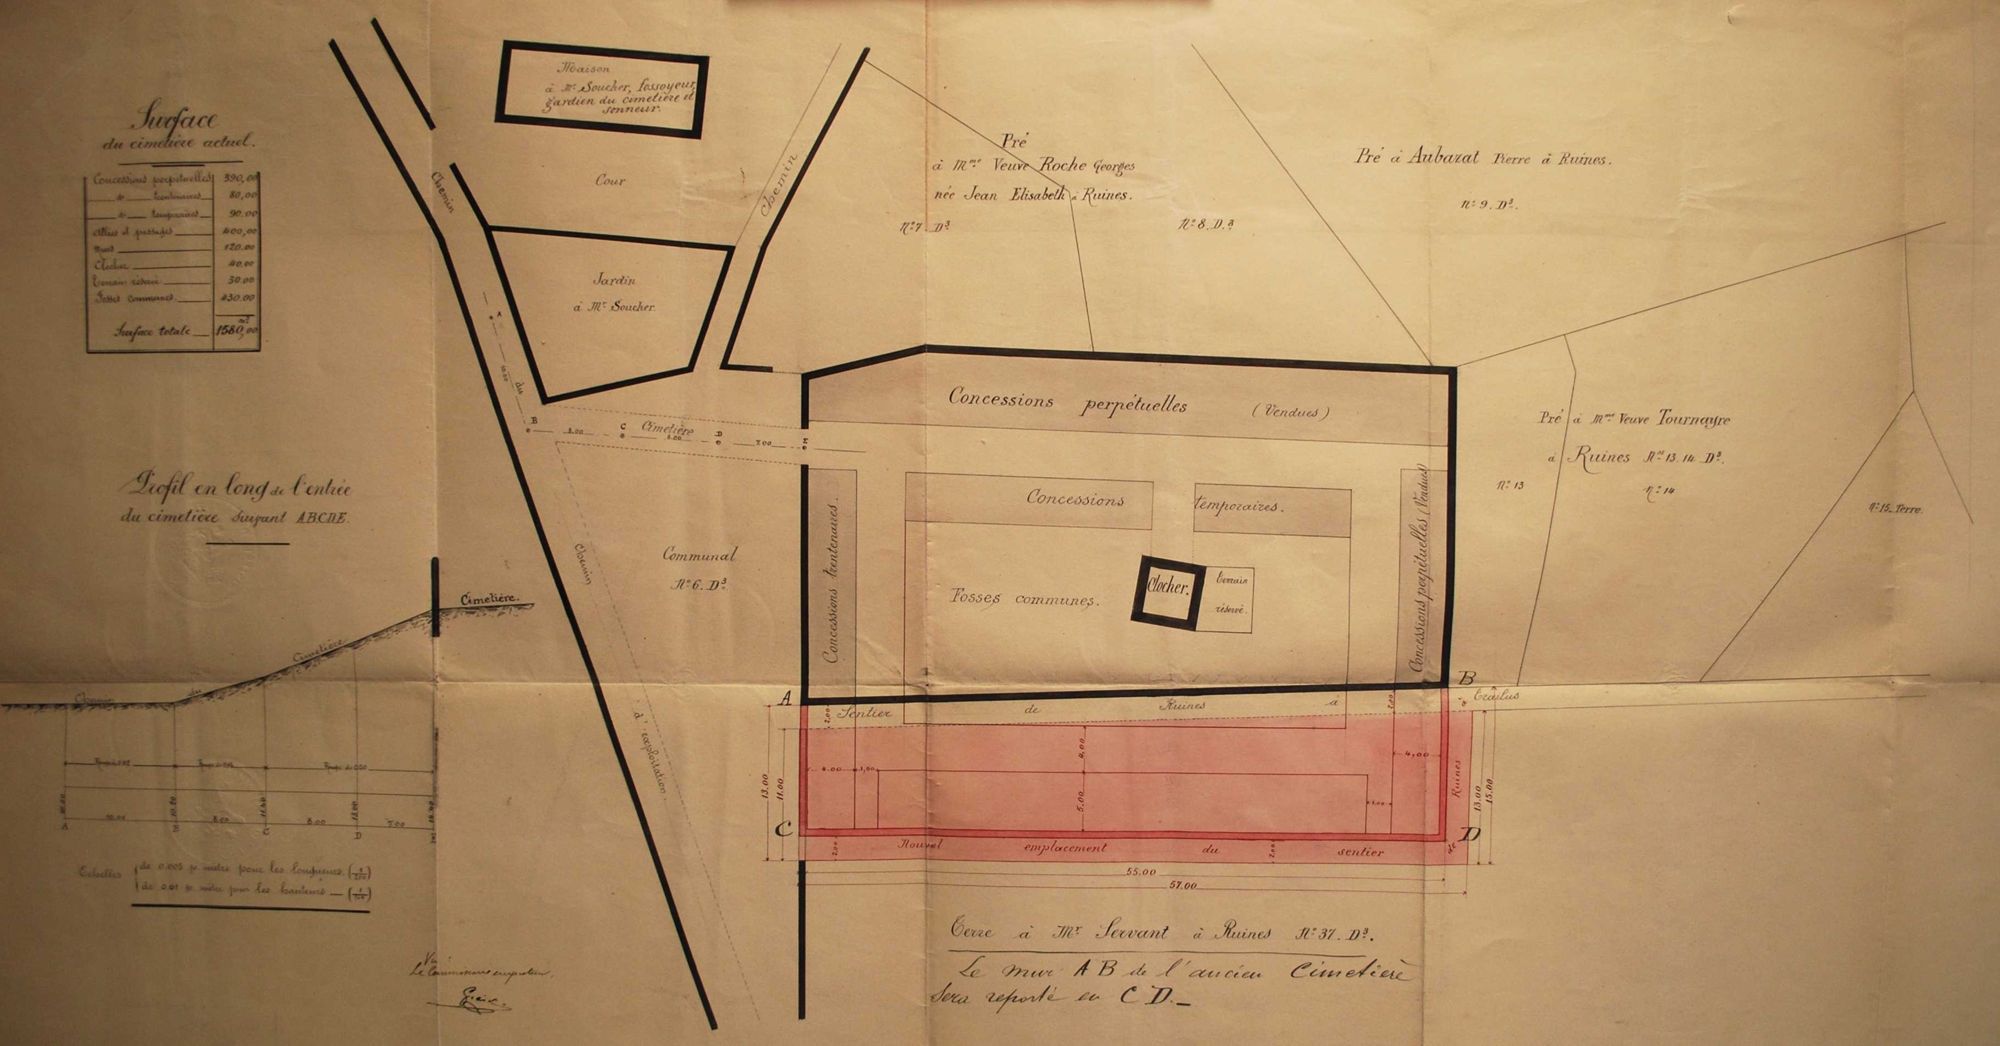 Surface
du cimetière actuel.
Concessions perpétuelles 390,00
do trentenaires 80,00
do temporaires 90.00
Allées et passages 400,00
Murs 120.00
Clocher 40.00
Terrain réservé 30.00
Fosses communes 430.00
Surface totale 1580,00
Profil en long de l'entrée
du cimetière suivant ABCDE.
Cimetière.
Chemin
du
Cimetière
A
B
C
D
10.00
8.00
8.00
7.00
Echelles
de 0.005 pr mètre pour les longueurs
de 0.01 pr mètre pour les hauteurs
Vu
Le Commissaire enquêteur,
Maison
à Mr Soucher, fossoyeur,
gardien du cimetière et
sonneur.
Cour
Chemin
Chemin
Jardin
à Mr Soucher.
A
10.00
du
B
8.00
C
Cimetière
8.00
D
7.00
E
Chemin
d'exploitation.
Communal
No 6. D3
Pré
à Mme Veuve Roche Georges
née Jean Elisabeth à Ruines.
No 7 D3
No 8. D.3
Pré à Aubazat Pierre à Ruines.
No 9. D3.
Pré à Mme Veuve Tournayre
à Ruines Nos 13. 14. D3.
No 13
No 14
No 15. Terre.
Concessions perpétuelles (Vendues)
Concessions trentenaires.
Concessions temporaires.
Concessions perpétuelles (Vendues)
Fosses communes.
Clocher.
Terrain
réservé.
A
B
Sentier de Ruines à Trailus
2.00
2.00
4.00
4.00
1,00
4,00
5.00
1.00
13.00
11.00
Ruines
13.00
15.00
C
D
Nouvel emplacement du sentier de
2.00
2.00
55.00
57.00
Terre à Mr Servant à Ruines No 37. D3.
Le mur AB de l'ancien Cimetière
Sera reporté en CD._